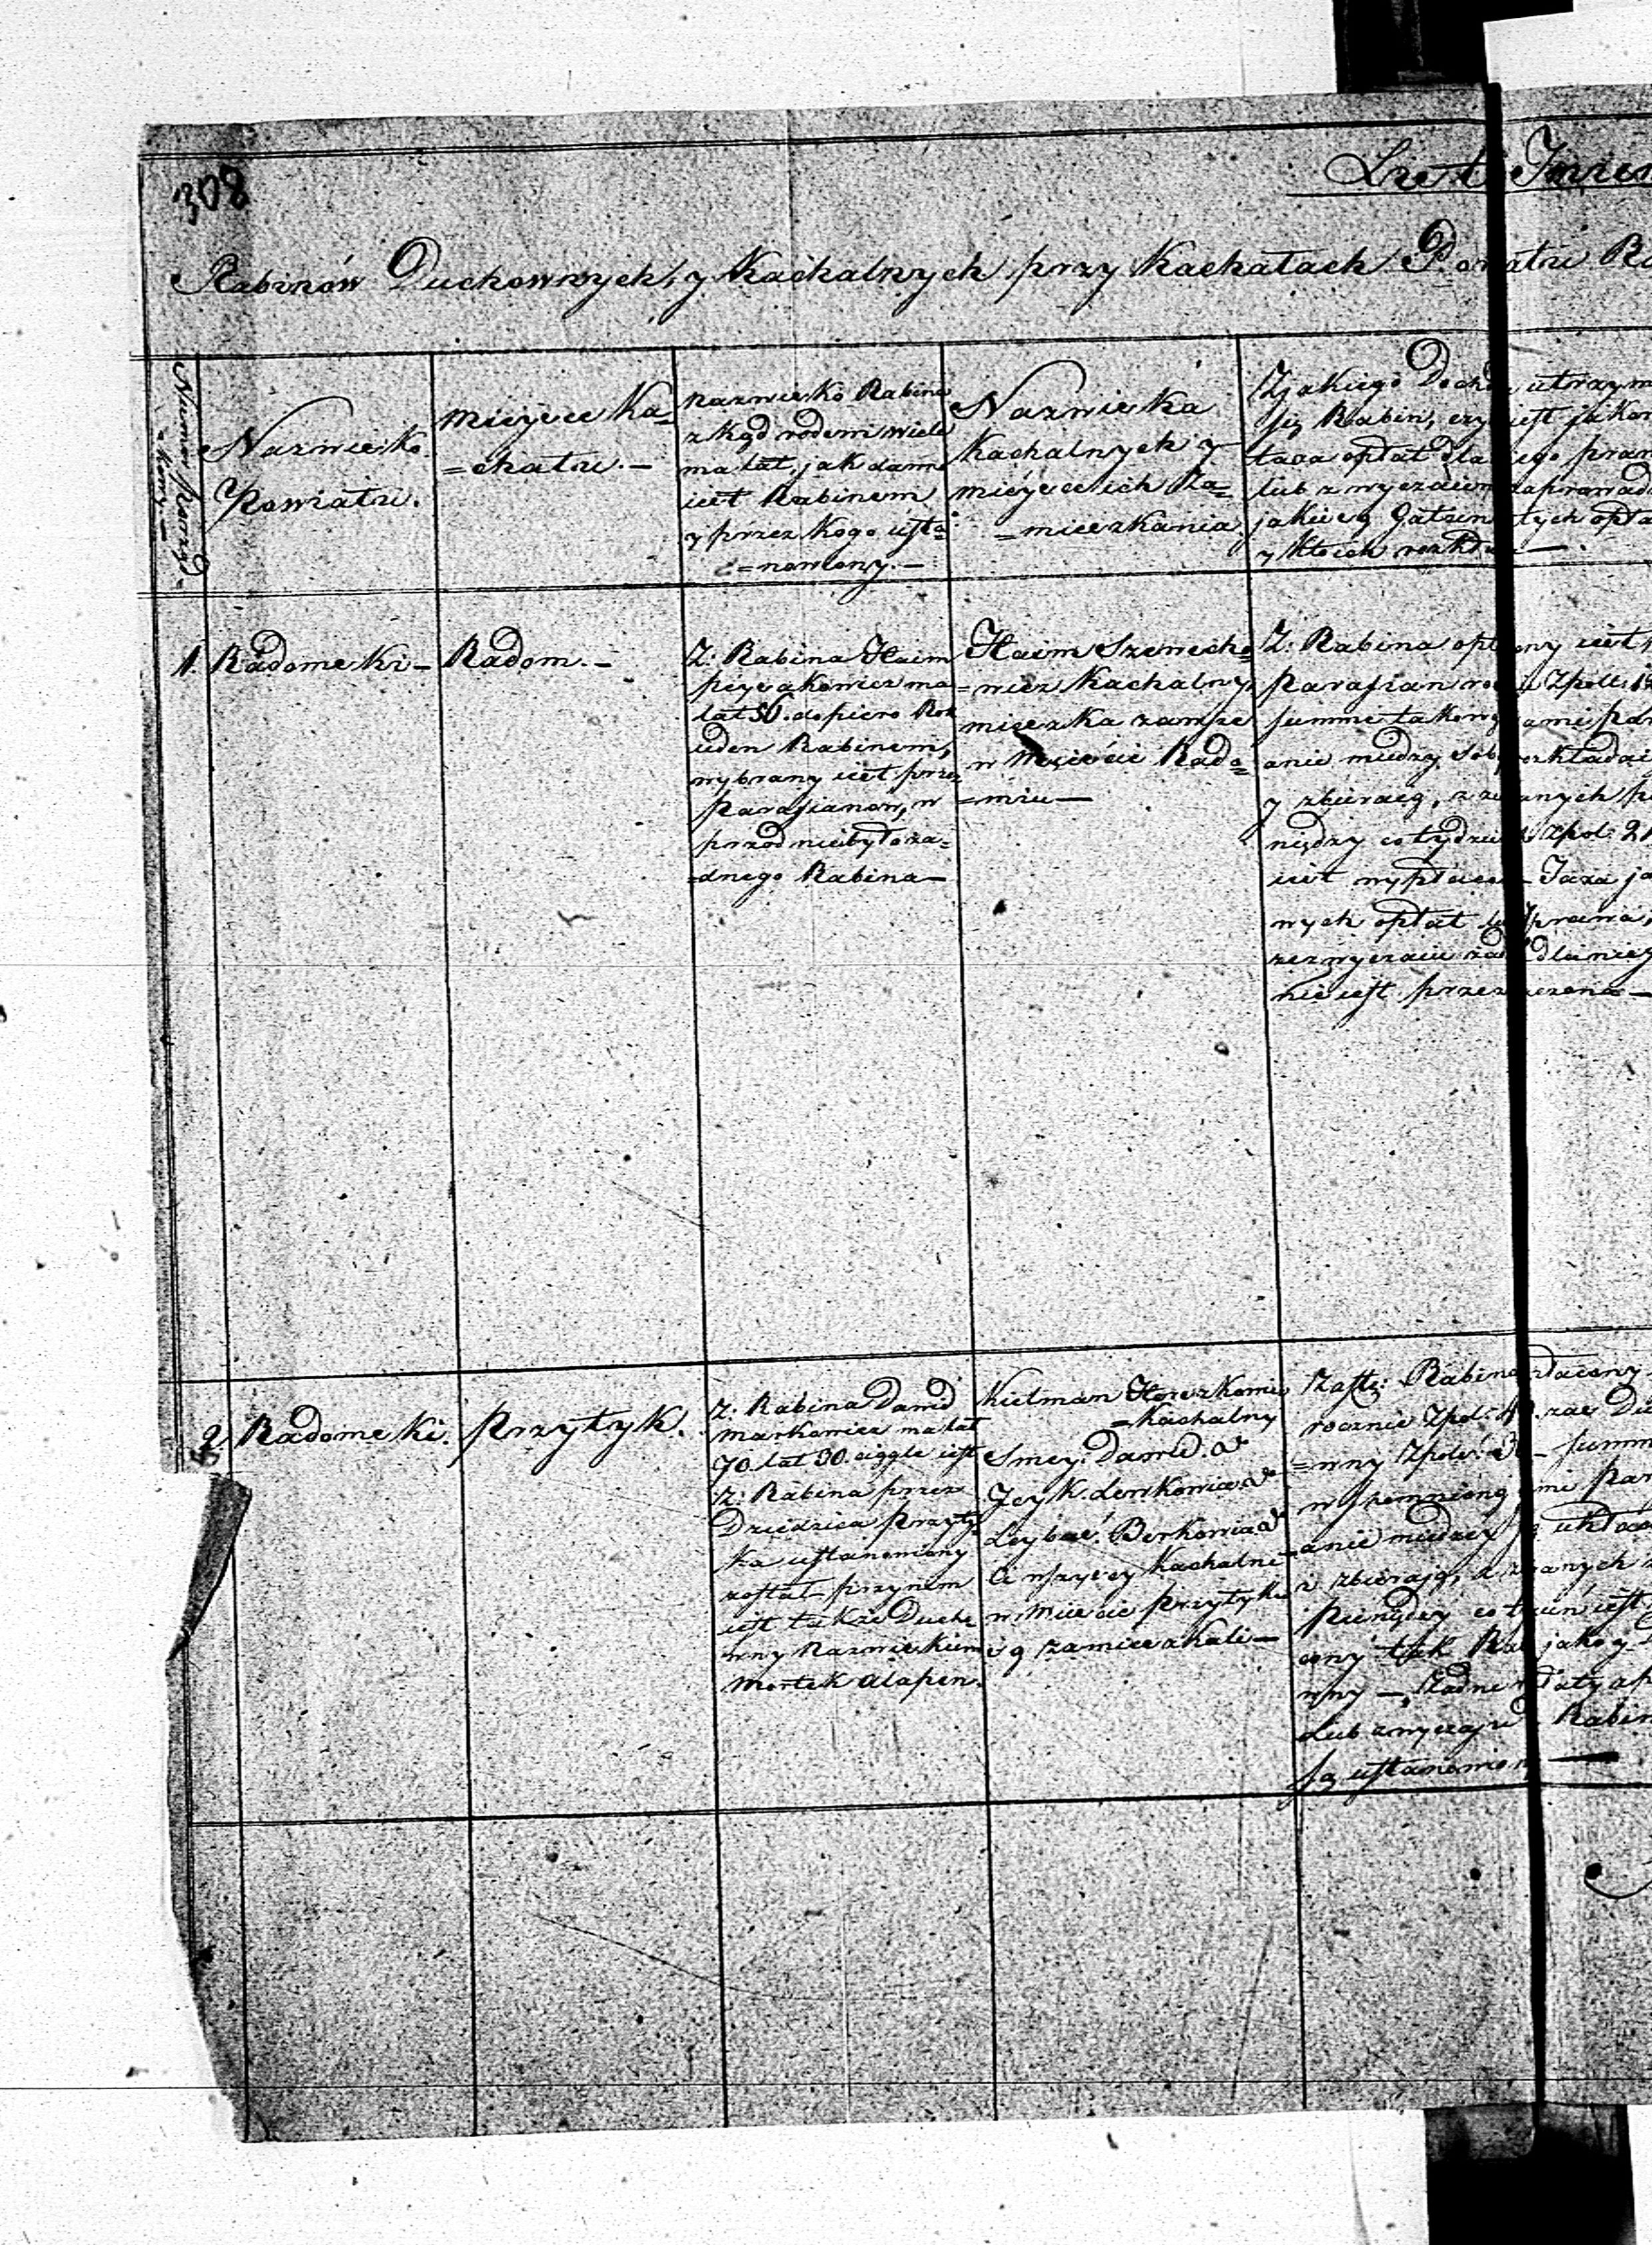 308
List Imien
Rabinów Duchownych, y Kachalnych przy Kachałach Powiatu Ra
Numer Porząd=
=kowy —
Nazwisko
Powiatu.
Mieysce Ka=
=chału. —
Nazwisko Rabina
z kąd rodem wiele
ma lat, jak dawno
iest Rabinem
y przez kogo usta=
=nowiony. —
Nazwiska
Kachalnych y
mieysce ich Za=
=mieszkania
Z jakiego Docho utrzym
się Rabin, czy iest jaka
taxa opłat dla iego praw
lub zwyczaiem zaprowad
jakieś Gatun tych opła
y ktoich rozkła — .
1. Radomski —
Radom. —
Z: Rabina Haim
ma
lat 50. dopiero Rok
ieden Rabinem,
wybrany iest przez
Parafianów, w
przod niebyło ża=
=dnego Rabina —
Haim Szmecho=
=wicz Kachalny,
mieszka zawsze
w Mieście Rado=
=miu —
Z: Rabina opł ony iest,
Parafian Zpoll:
summe takow ami par
anie miedzy sob ozkładai
y zbieraią, z ze anych p
niędzy co tydzie Zpol: 2
iest wypłaco — Taxa ja
wych opłat prawa,
zezwyczaiu ża dla niey
nie iest przez czona —
2. Radomski.
Przytyk.
Z: Rabina Dawid
Markowicz ma lat
70. lat 30. ciągle iest
Z: Rabina przez
Dziedzica Przyty=
ka ustanowiony
został przy nim
iest także Ducho
wny Nazwiskiem
Mortek Alapen.
Kielman Herszkowi
=Kachalny
Smey. Dawid. d°
Jcyk. Lewkowicz d°
Leybuś. Berkowicz d°
Ci wszyscy Kachalni
w Mieście Przytyku
są zamieszkali —
Zastę: Rabina płacony
rocznie Zpol: zas Du
=wny Zpol: — summ
wspomnioną mi Par
anie miedzy ukłaca
i zbieraią, z ranych
Pieniędzy co iest
cony tak Ra jako y
wny — Żadne płaty
Lub zwyczaju Rabin
są ustanowion —